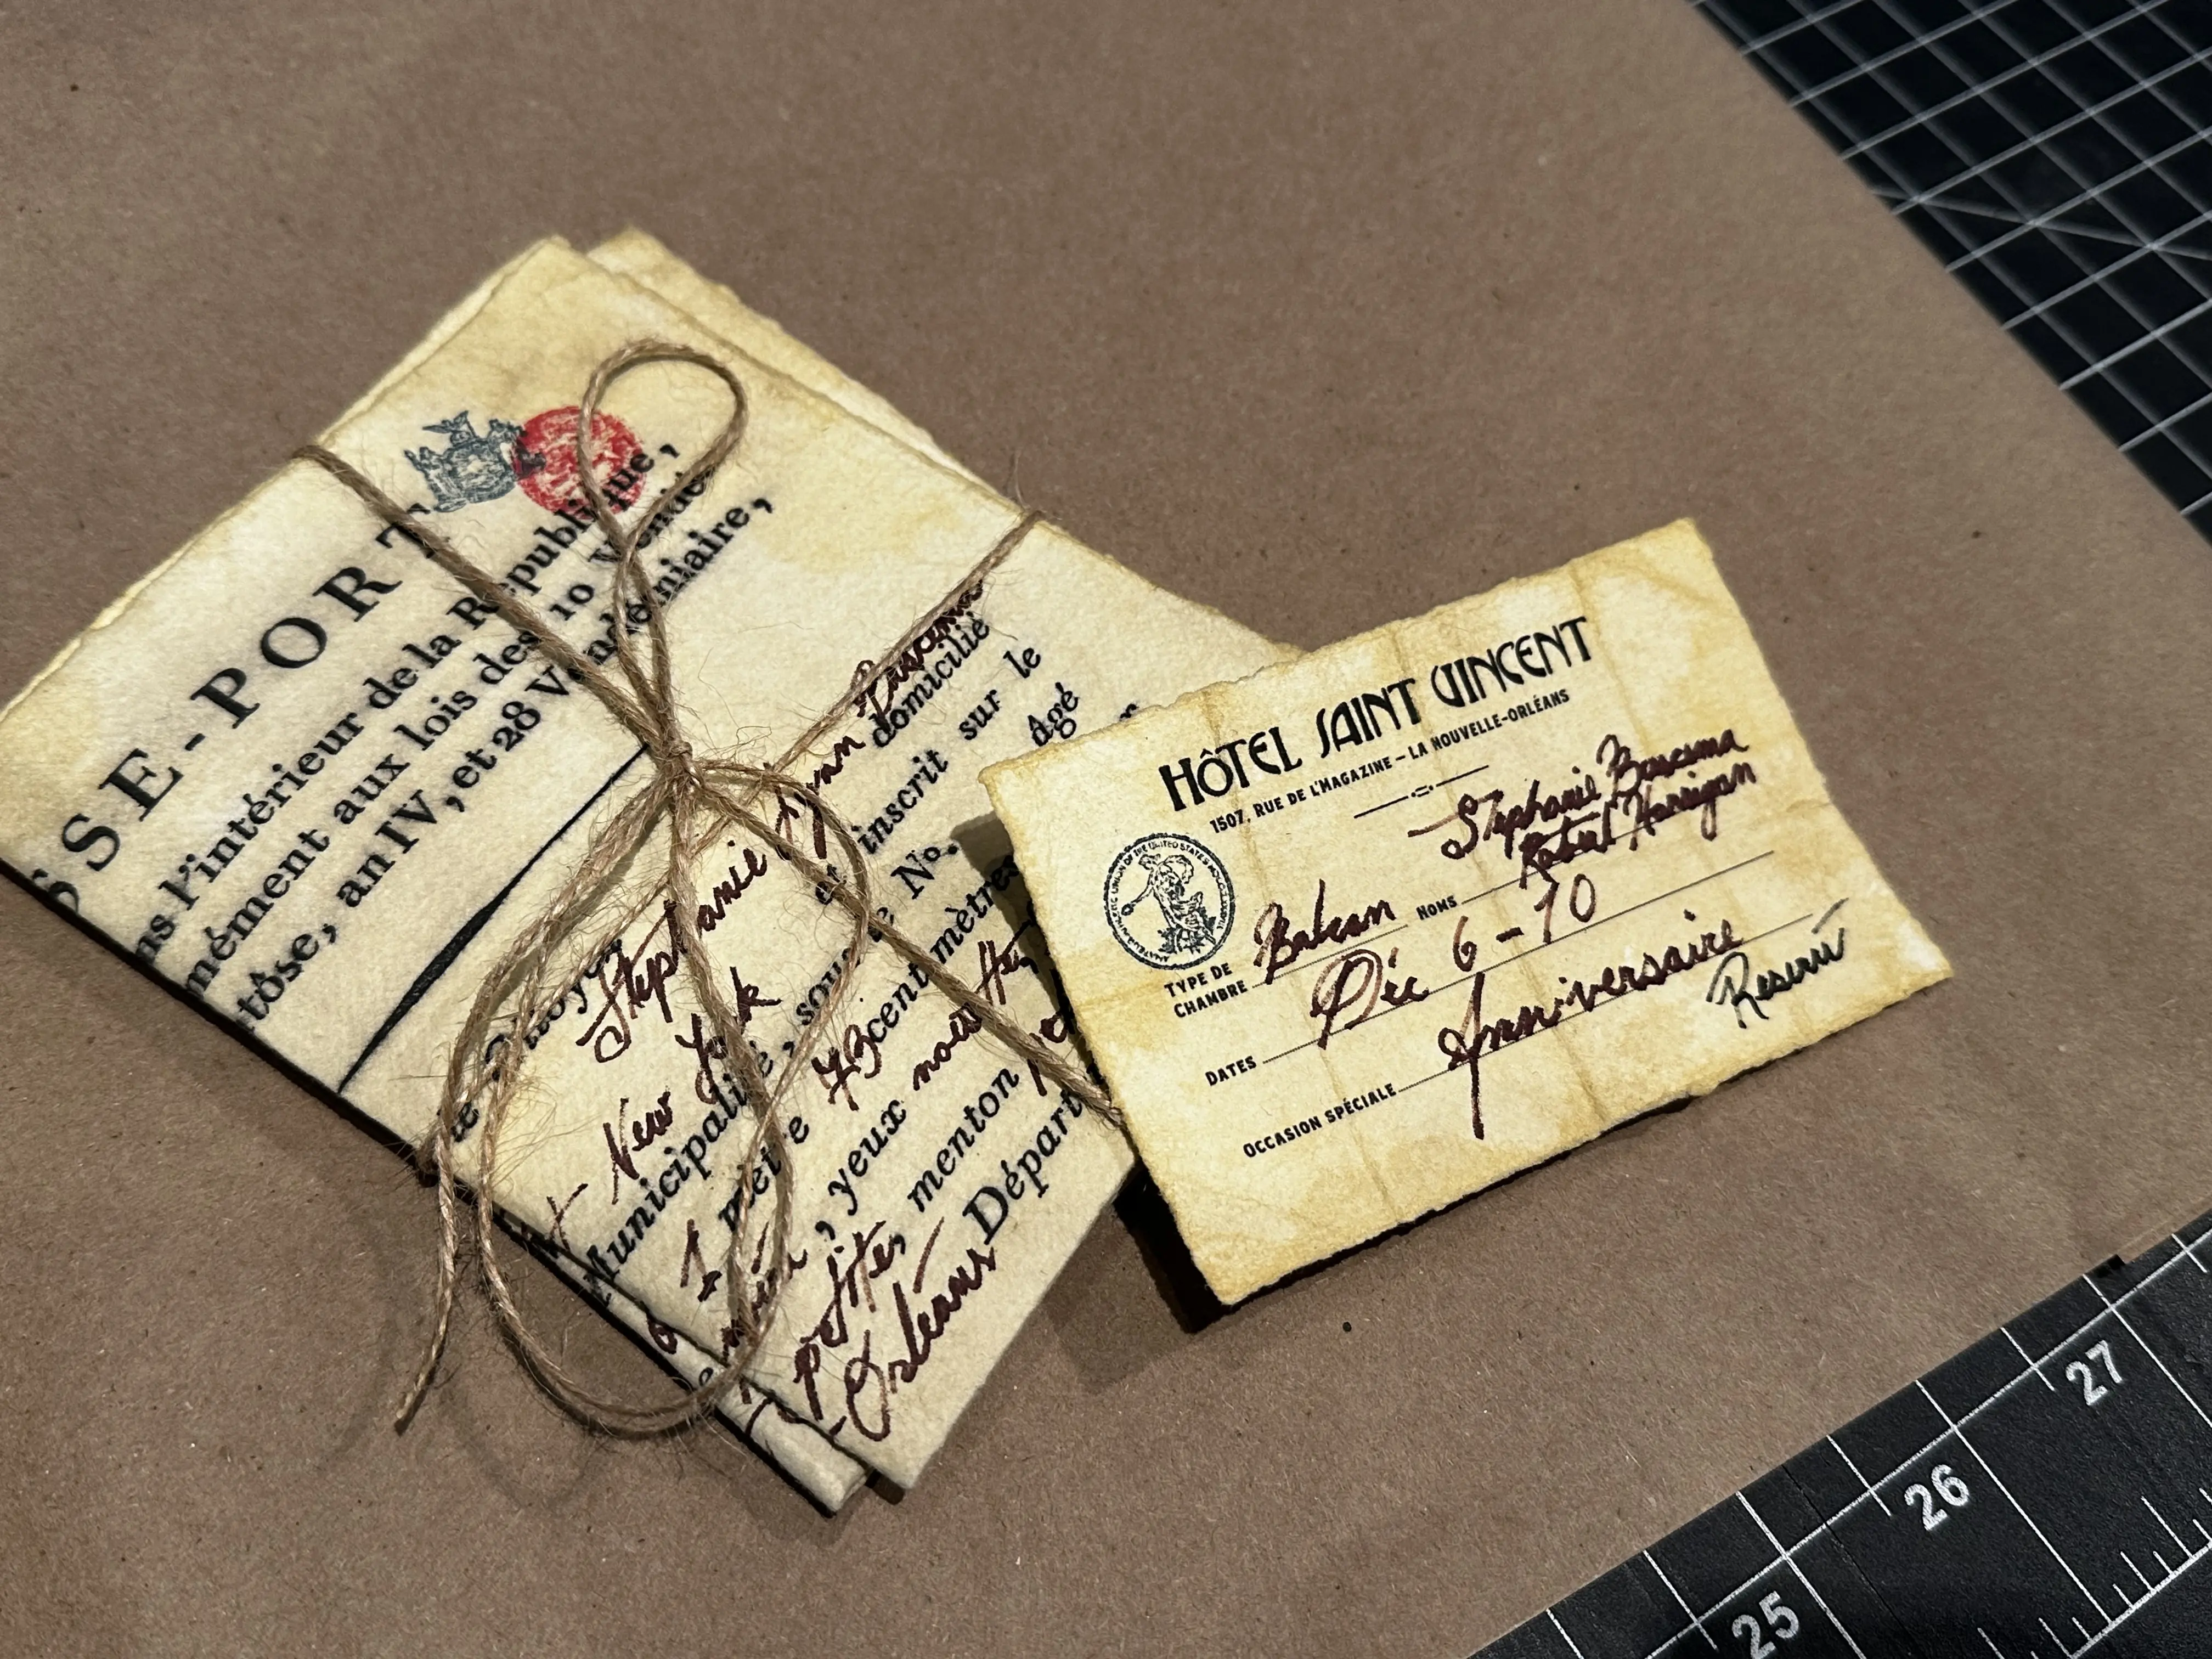 SSE-PORT
ns l'intérieur de la République,
mément aux lois des 10 Vendé
tôse, an IV, et 28 Vendémiaire,
Stephanie Lynn
domicilié
New York et inscrit sur le
Municipalité, sous le No. âgé
1 mètre 73 centimètres
, yeux noisette,
petite, menton
Orléans Départ
HÔTEL SAINT VINCENT
1507, RUE DE L'MAGAZINE – LA NOUVELLE-ORLÉANS
TYPE DE CHAMBRE Balcon NOMS Stephanie
Robert Harrigan
DATES Déc 6-10
OCCASION SPÉCIALE Anniversaire
25
26
27